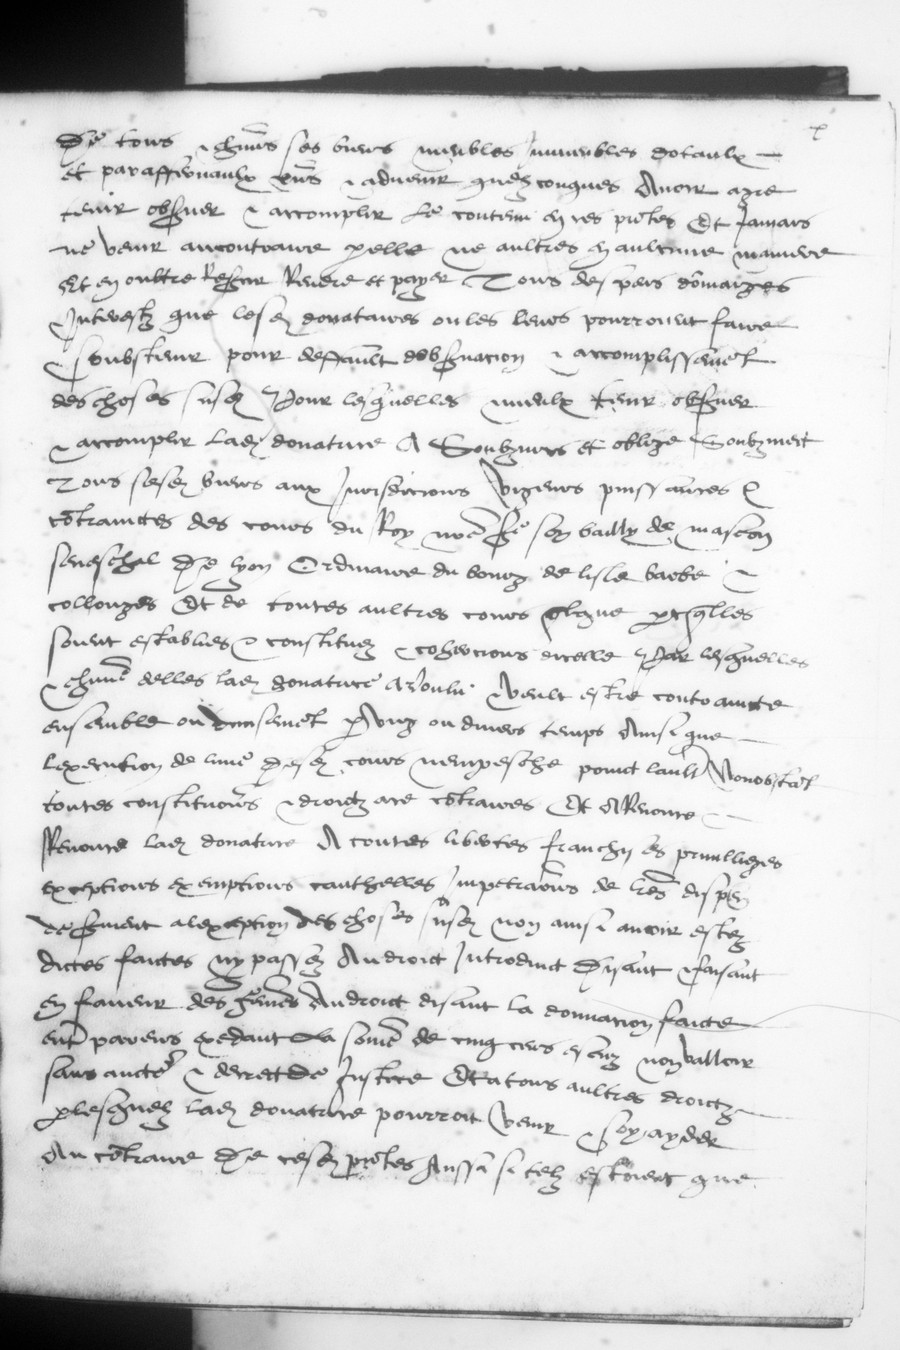 De tous & chuns ses biens meubles Immeubles dotaulx
et paraffernaulx pns & advenir quelzconques Avoir agre
tenir observer & accomplir Le contenu en ces pntes Et Jamais
ne venir aucontraire p elle ne aultres en aulcune maniere
Et en oultre Reffer Rendre et payer Tous despens domaiges
Interestz que lesd donataires ou les leurs pourroient faire
& soubstenir pour deffault dobservation & accomplissemet
des choses susd Pour lesquelles mieulx tenir observer
& accomplir Lad donatrice A Soubzmis et oblige Soubzmect
Tous sesd biens aux Jurisdictions vigeurs puissances &
contrainctes des cours du Roy nre sire son bailly de mascon
seneschal De lyon Ordinaire du bourg de lisle barbe &
collonges Et de toutes aultres cours
soient establies & constituez & cohercions dicelle Par lesquelles
& chune delles lad donatrice A voulu & veult estre contraincte
ensemble ou p ung ou divers temps Ainsi que
Lexecution de lune Desd cours nempesche point laultre Nonobstat
toutes constitutions & droictz a ce contraires Et A Renonce
Renonce lad donatrice A toutes libertes franchises privilleges
exceptions exemptions cauthelles Impetrations de lres
alexception des choses susd non ainsi avoir estez
dictes faictes ny passez Au droict Introduict Disant & faisant
en faveur des femes Au droict disant la donnation faicte
entre parens excedant La some de cinq cens escuz non valloir
sans aucte & decret De Justice Et a tous aultres droictz
p lesquelz lad donatrice pourroit venir & soy ayder
Au contraire De cesd pntes Aussi si telz estoient que